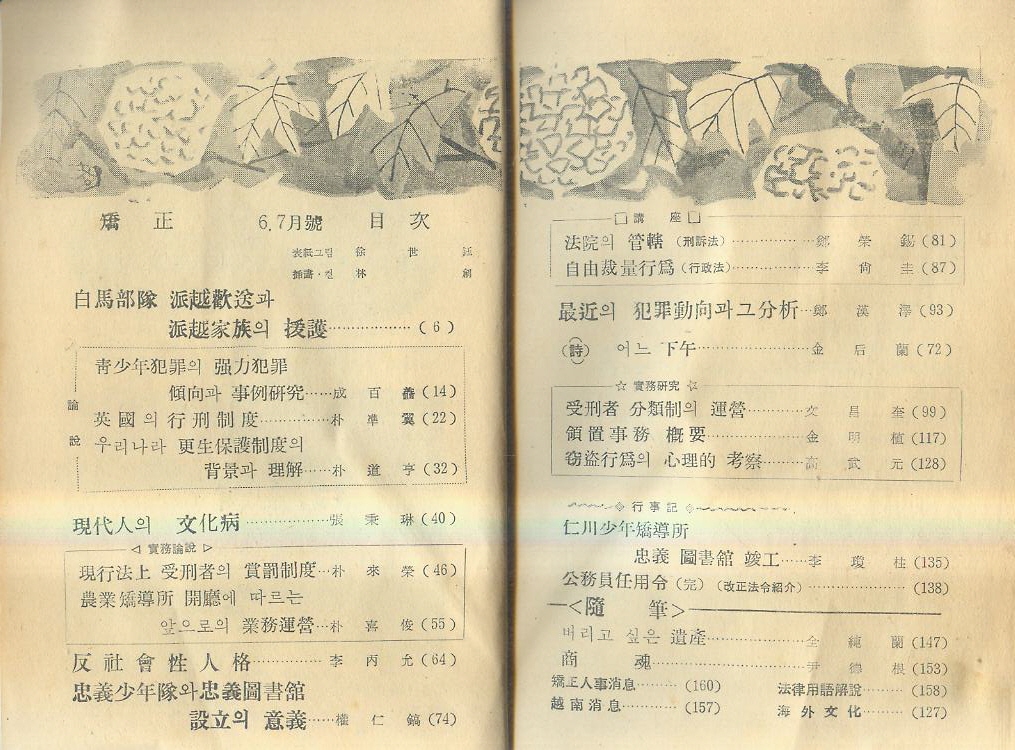 矯正 6.7月號 目次
表紙그림 徐世
揷畵·컷 林 創
白馬部隊 派越歡送과
派越家族의 援護……………(6)
論說
靑少年犯罪의 强力犯罪
傾向과 事例硏究……成百 (14)
英國의 行刑制度…………朴準翼(22)
우리나라 更生保護制度의
背景과 理解……朴道亨(32)
現代人의 文化病……………張秉琳(40)
◁ 實務論說 ▷
現行法上 受刑者의 賞罰制度…朴來榮(46)
農業矯導所 開廳에 따르는
앞으로의 業務運營……朴喜俊(55)
反社會性人格……………李丙允(64)
忠義少年隊와忠義圖書館
設立의 意義……權仁鎬(74)
□ 講座 □
法院의 管轄 (刑訴法)……………鄭榮錫(81)
自由裁量行爲(行政法)……………李尙圭(87)
最近의 犯罪動向과그分析…鄭漢澤(93)
(詩) 어느 下午……………金后蘭(72)
☆ 實務硏究 ☆
受刑者 分類制의 運營…………文昌奎(99)
領置事務 槪要……………金明植(117)
窃盜行爲의 心理的 考察………高武元(128)
行事記
仁川少年矯導所
忠義 圖書館 竣工……李瓊柱(135)
公務員任用令(完) (改正法令紹介)……………(138)
<隨筆>
버리고 싶은 遺産……………全純蘭(147)
商魂……………尹德根(153)
矯正人事消息………(160) 法律用語解說………(158)
越南消息…………(157) 海外文化………(127)